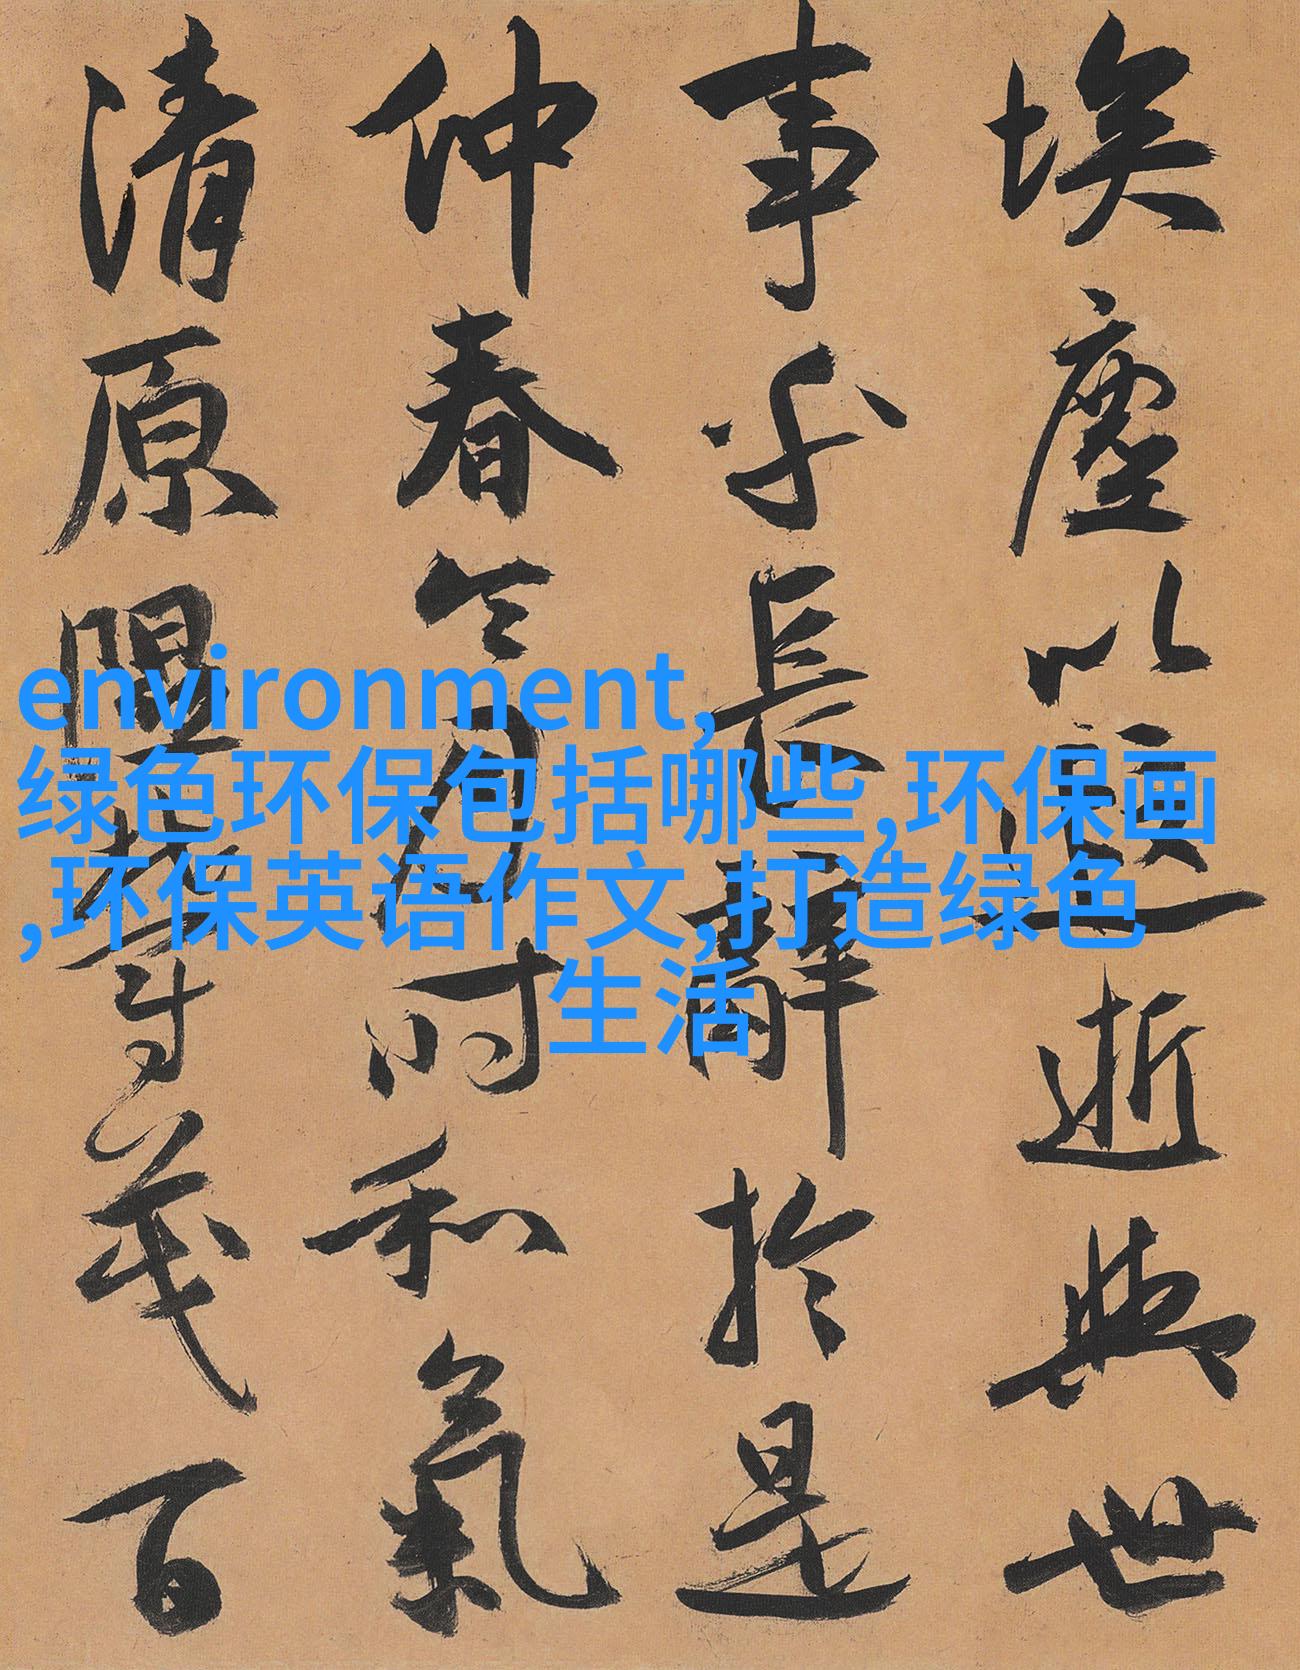 埃塵以遐逝與世
事乎長辭於是
仲春令月時和氣
清原隰鬱茂百
environment,
绿色环保包括哪些,环保画
,环保英语作文,打造绿色
生活